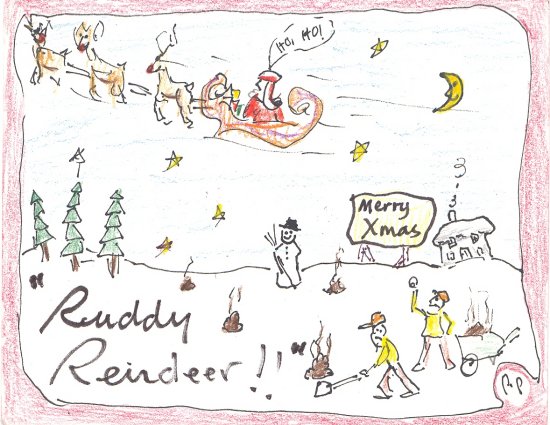 HO! HO!
Merry
Xmas
"Ruddy
Reindeer!!"
RP